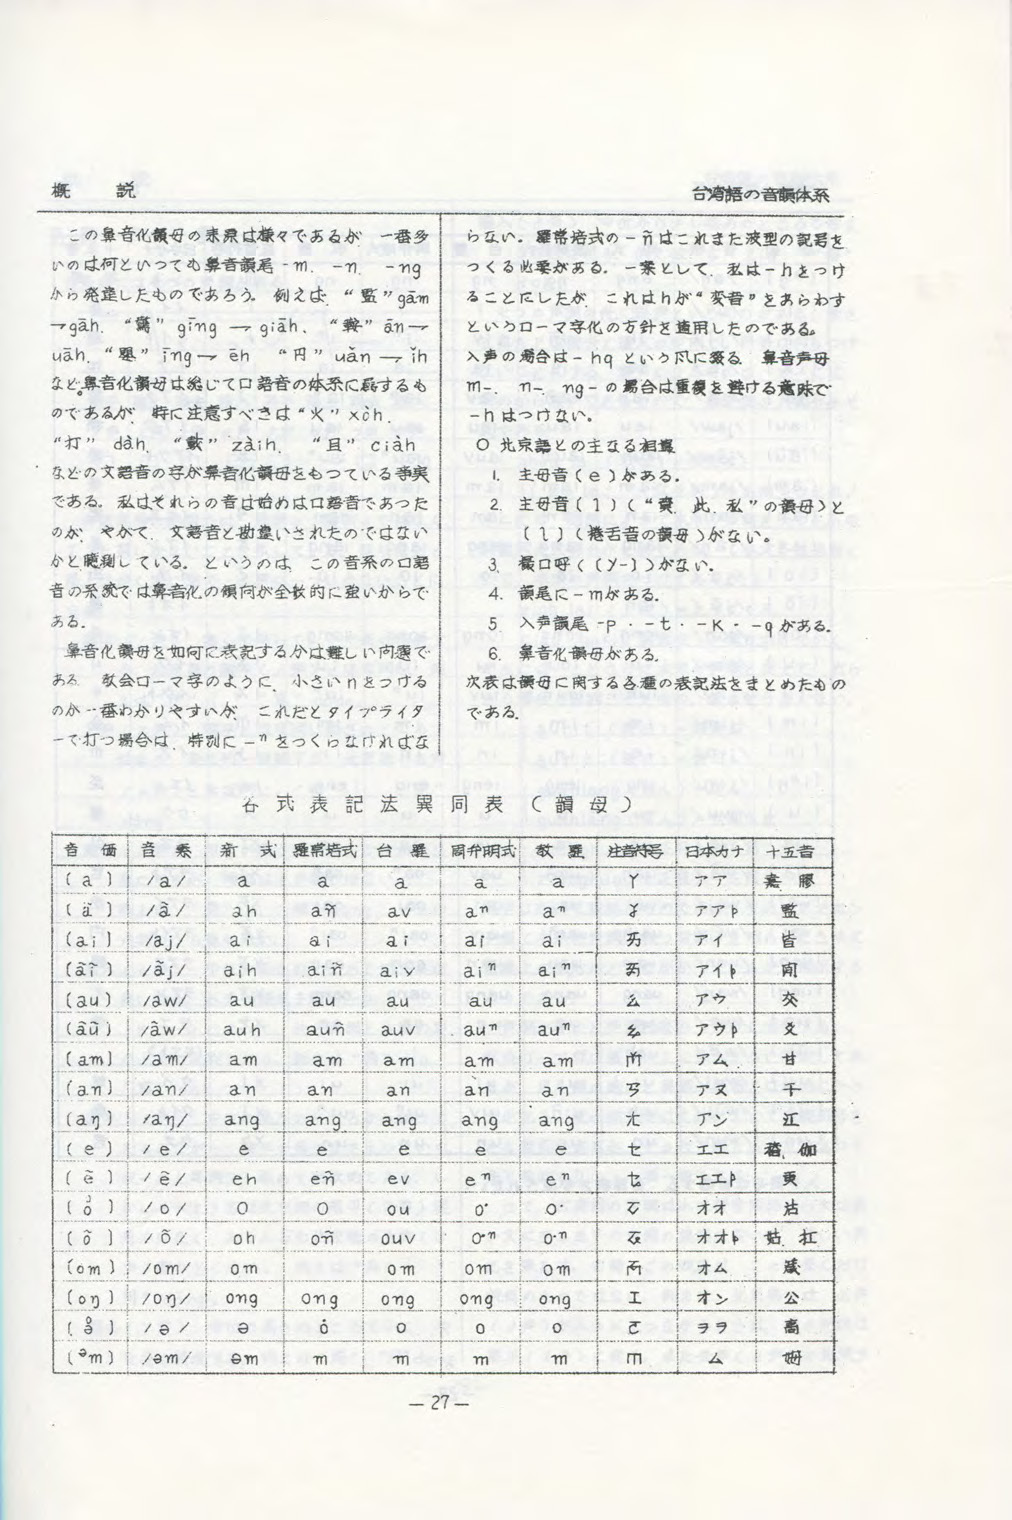 概　説
台湾語の音韻体系
この鼻音化韻母の来源は様々であるが　一番多
いのは何といっても鼻音韻尾 -m. -n. -ng
から発達したものであろう。例えば、“監” gām
→gāh. “驚” gīng → giāh. “鞍” ān→
uāh. “嬰” īng→ ēh “円” uǎn → ǐh
など。鼻音化韻母は総じて口語音の体系に属するも
のであるが、特に注意すべきは“火” xòh.
“打” dàh. “載” zàih. “且” ciàh
などの文語音の字が鼻音化韻母をもつている事実
である。私はそれらの音は始めは口語音であつた
のが、やがて、文語音と勘違いされたのではない
かと臆測している。というのは、この音系の口語
音の系統では鼻音化の傾向が全般的に強いからで
ある.
鼻音化韻母を如何に表記するかは難しい問題で
ある　教会ローマ字のように、小さい n をつける
のが一番わかりやすいが、これだとタイプライタ
ーで打つ場合は、特別に -ⁿ をつくらなければな
らない。羅常培式の -ñ はこれまた波型の記号を
つくる必要がある。一案として、私は -h をつけ
ることにしたが、これは h が“変音”をあらわす
というローマ字化の方針を適用したのである。
入声の場合は -hq という風に綴る. 鼻音声母
m-. n-. ng- の場合は重複を避ける意味で
-h はつけない。
○ 北京語との主なる相違
1. 主母音 (e) がある.
2. 主母音 (ɿ) (“資、此、私”の韻母) と
(ʅ) (捲舌音の韻母) がない。
3. 撮口呼 ( (y-) ) がない.
4. 韻尾に -m がある.
5. 入声韻尾 -p・-t・-k・-q がある.
6. 鼻音化韻母がある.
次表は韻母に関する各種の表記法をまとめたもの
である.
各式表記法異同表（韻母）
音価 音素 新式 羅常培式 台羅 周弁明式 教羅 注音符号 日本カナ 十五音
(a) /a/ a a a a a ㄚ アア 嘉 膠
(ã) /ã/ ah añ av aⁿ aⁿ ㆩ アアþ 監
(ai) /aj/ ai ai ai ai ai ㄞ アイ 皆
(ãĩ) /ãj/ aih aiñ aiv aiⁿ aiⁿ ㆮ アイþ 閒
(au) /aw/ au au au au au ㄠ アウ 交
(ãũ) /ãw/ auh auñ auv auⁿ auⁿ ㆯ アウþ 爻
(am) /am/ am am am am am ㆰ アム 甘
(an) /an/ an an an an an ㄢ アヌ 干
(aŋ) /aŋ/ ang ang ang ang ang ㄤ アン 江
(e) /e/ e e e e e ㆤ エエ 稽、伽
(ẽ) /ẽ/ eh eñ ev eⁿ eⁿ ㆥ エエþ 更
(ɔ) /o/ O O ou o· o· ㆦ オオ 沽
(õ) /õ/ oh oñ ouv o·ⁿ o·ⁿ ㆧ オオþ 姑. 扛
(om) /om/ om om om om ㆱ オム 箴
(oŋ) /oŋ/ ong ong ong ong ong ㆲ オン 公
/ə/ ə ȯ o o o ㄜ ヲヲ 高
(ᵊm) /əm/ əm m m m m ㆬ ム 姆
— 27 —